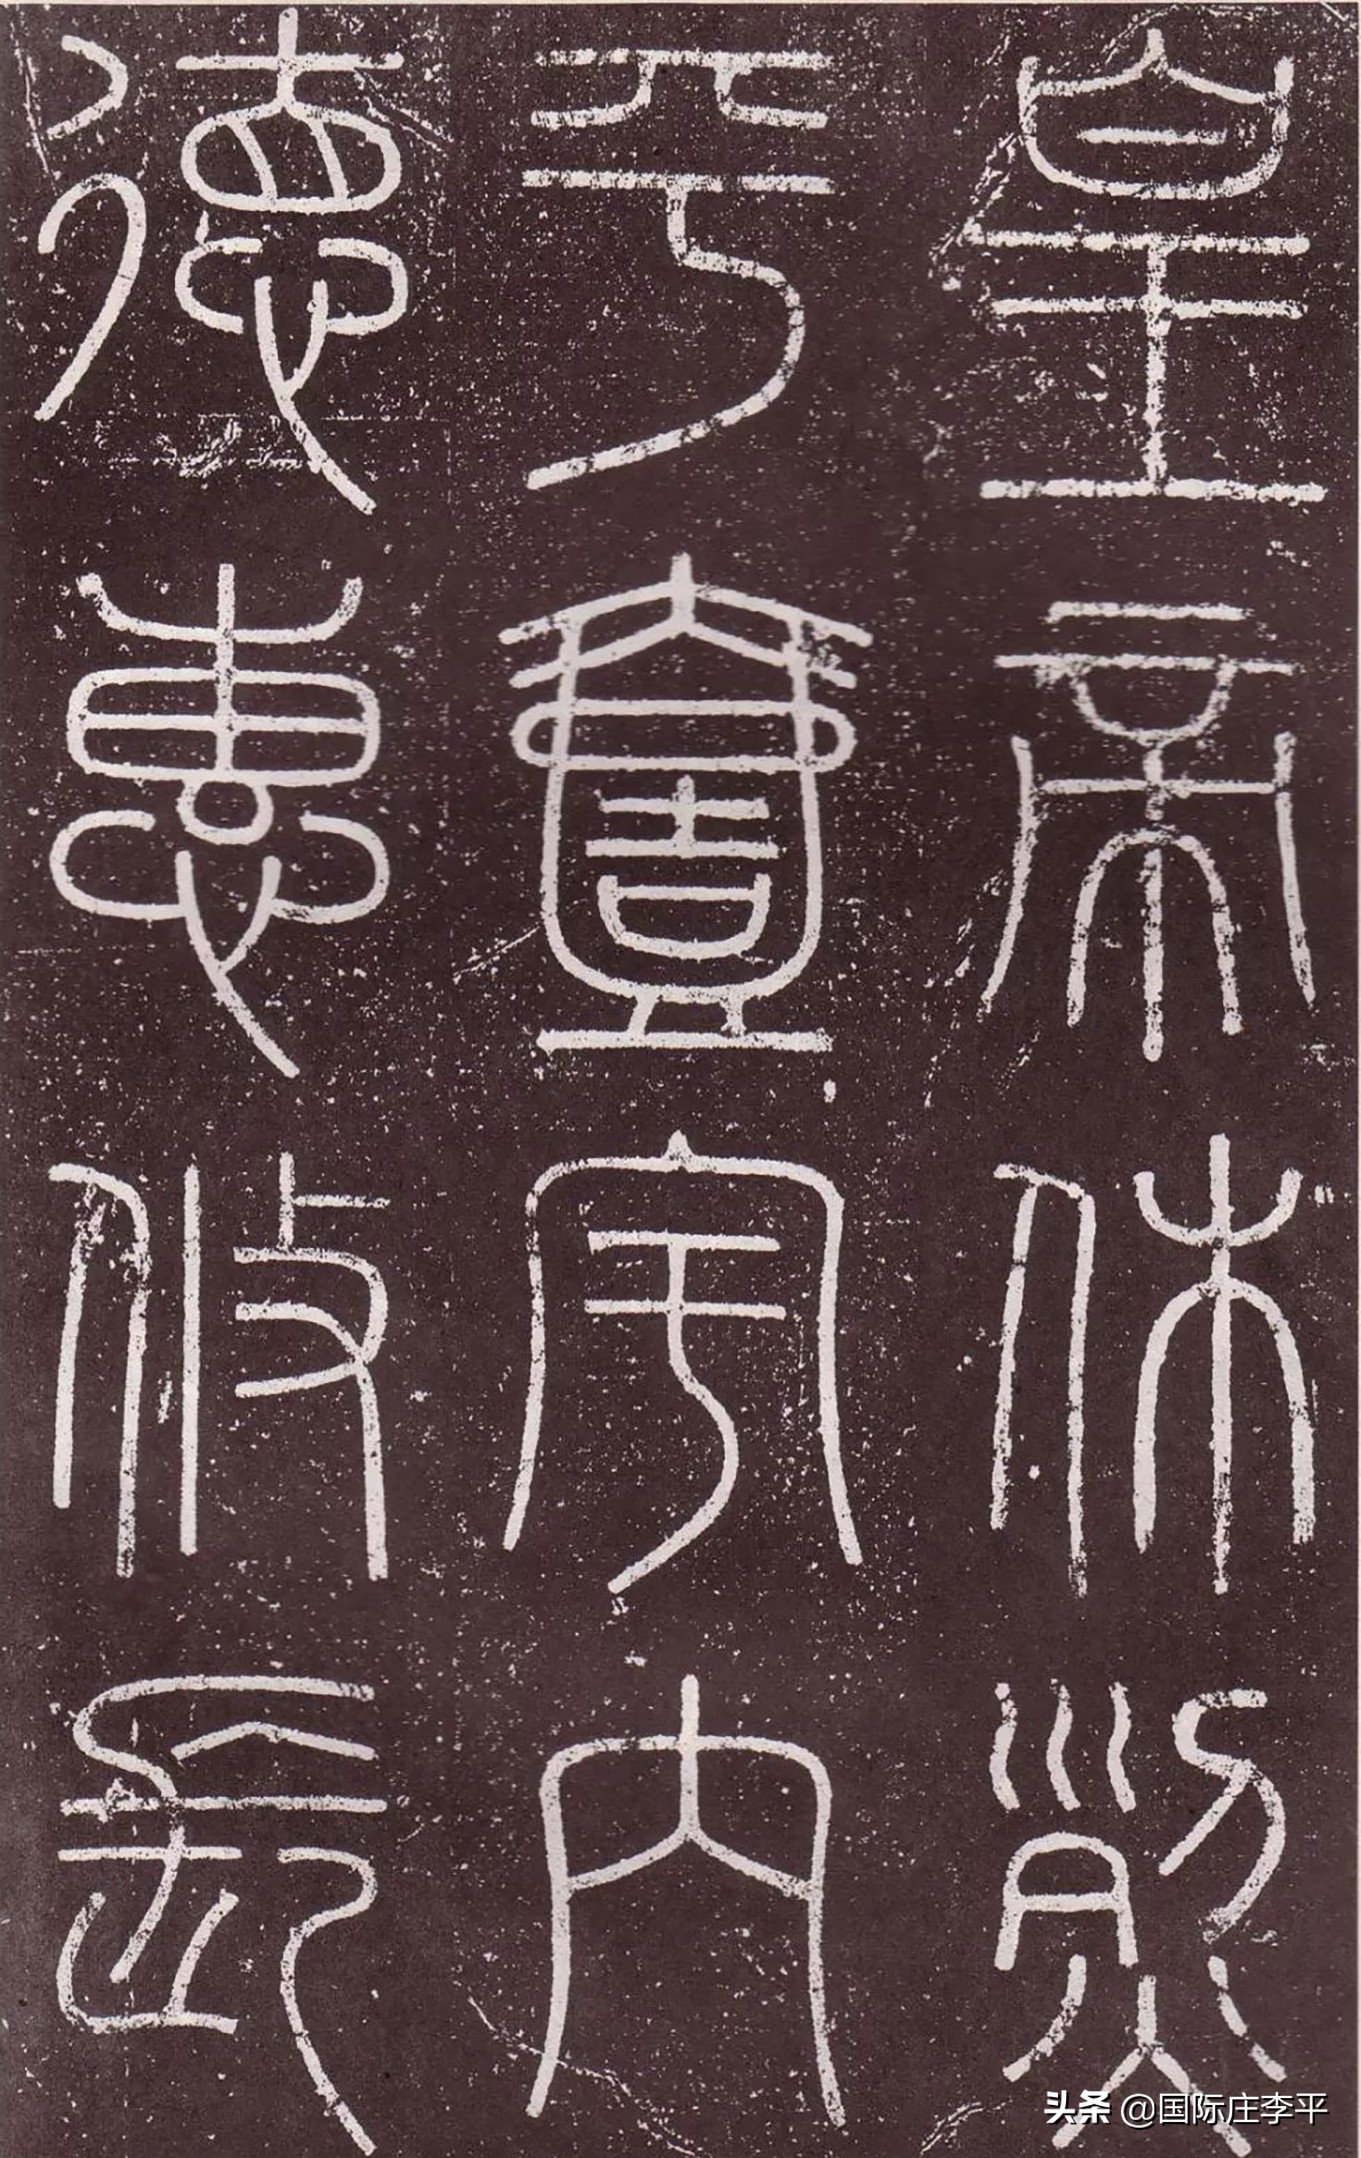 皇帝休烈
平壹宇内
德惠攸長
头条 @国际庄李平